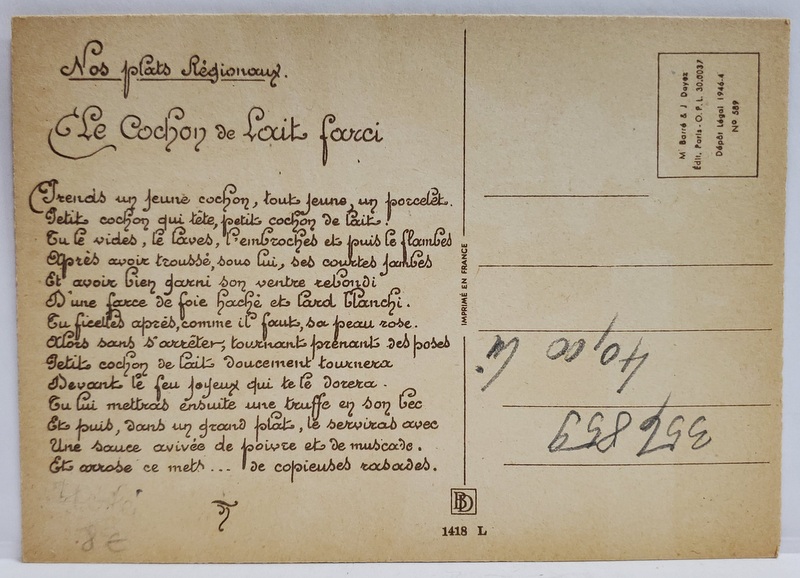 Nos plats Régionaux.
Le Cochon de Lait farci
Prends un jeune cochon, tout jeune, un porcelet.
Petit cochon qui tète, petit cochon de lait.
Tu le vides, le laves, l'embroches et puis le flambes
Après avoir troussé, sous lui, ses courtes jambes
Et avoir bien garni son ventre rebondi
D'une farce de foie haché et lard blanchi.
Tu ficelles après, comme il faut, sa peau rose.
Alors sans s'arrêter, tournant prenant des poses
Petit cochon de lait doucement tournera
Devant le feu joyeux qui te le dorera.
Tu lui mettras ensuite une truffe en son bec
Et puis, dans un grand plat, le serviras avec
Une sauce avivée de poivre et de muscade.
Et arrose ce mets... de copieuses rasades.
IMPRIMÉ EN FRANCE
BD
1418 L
Mce Barré & J. Dayez
Édit. Paris - O.P.L. 30.0037
Dépôt Légal 1946-4
No 589
40,00 lei
357859
8 €